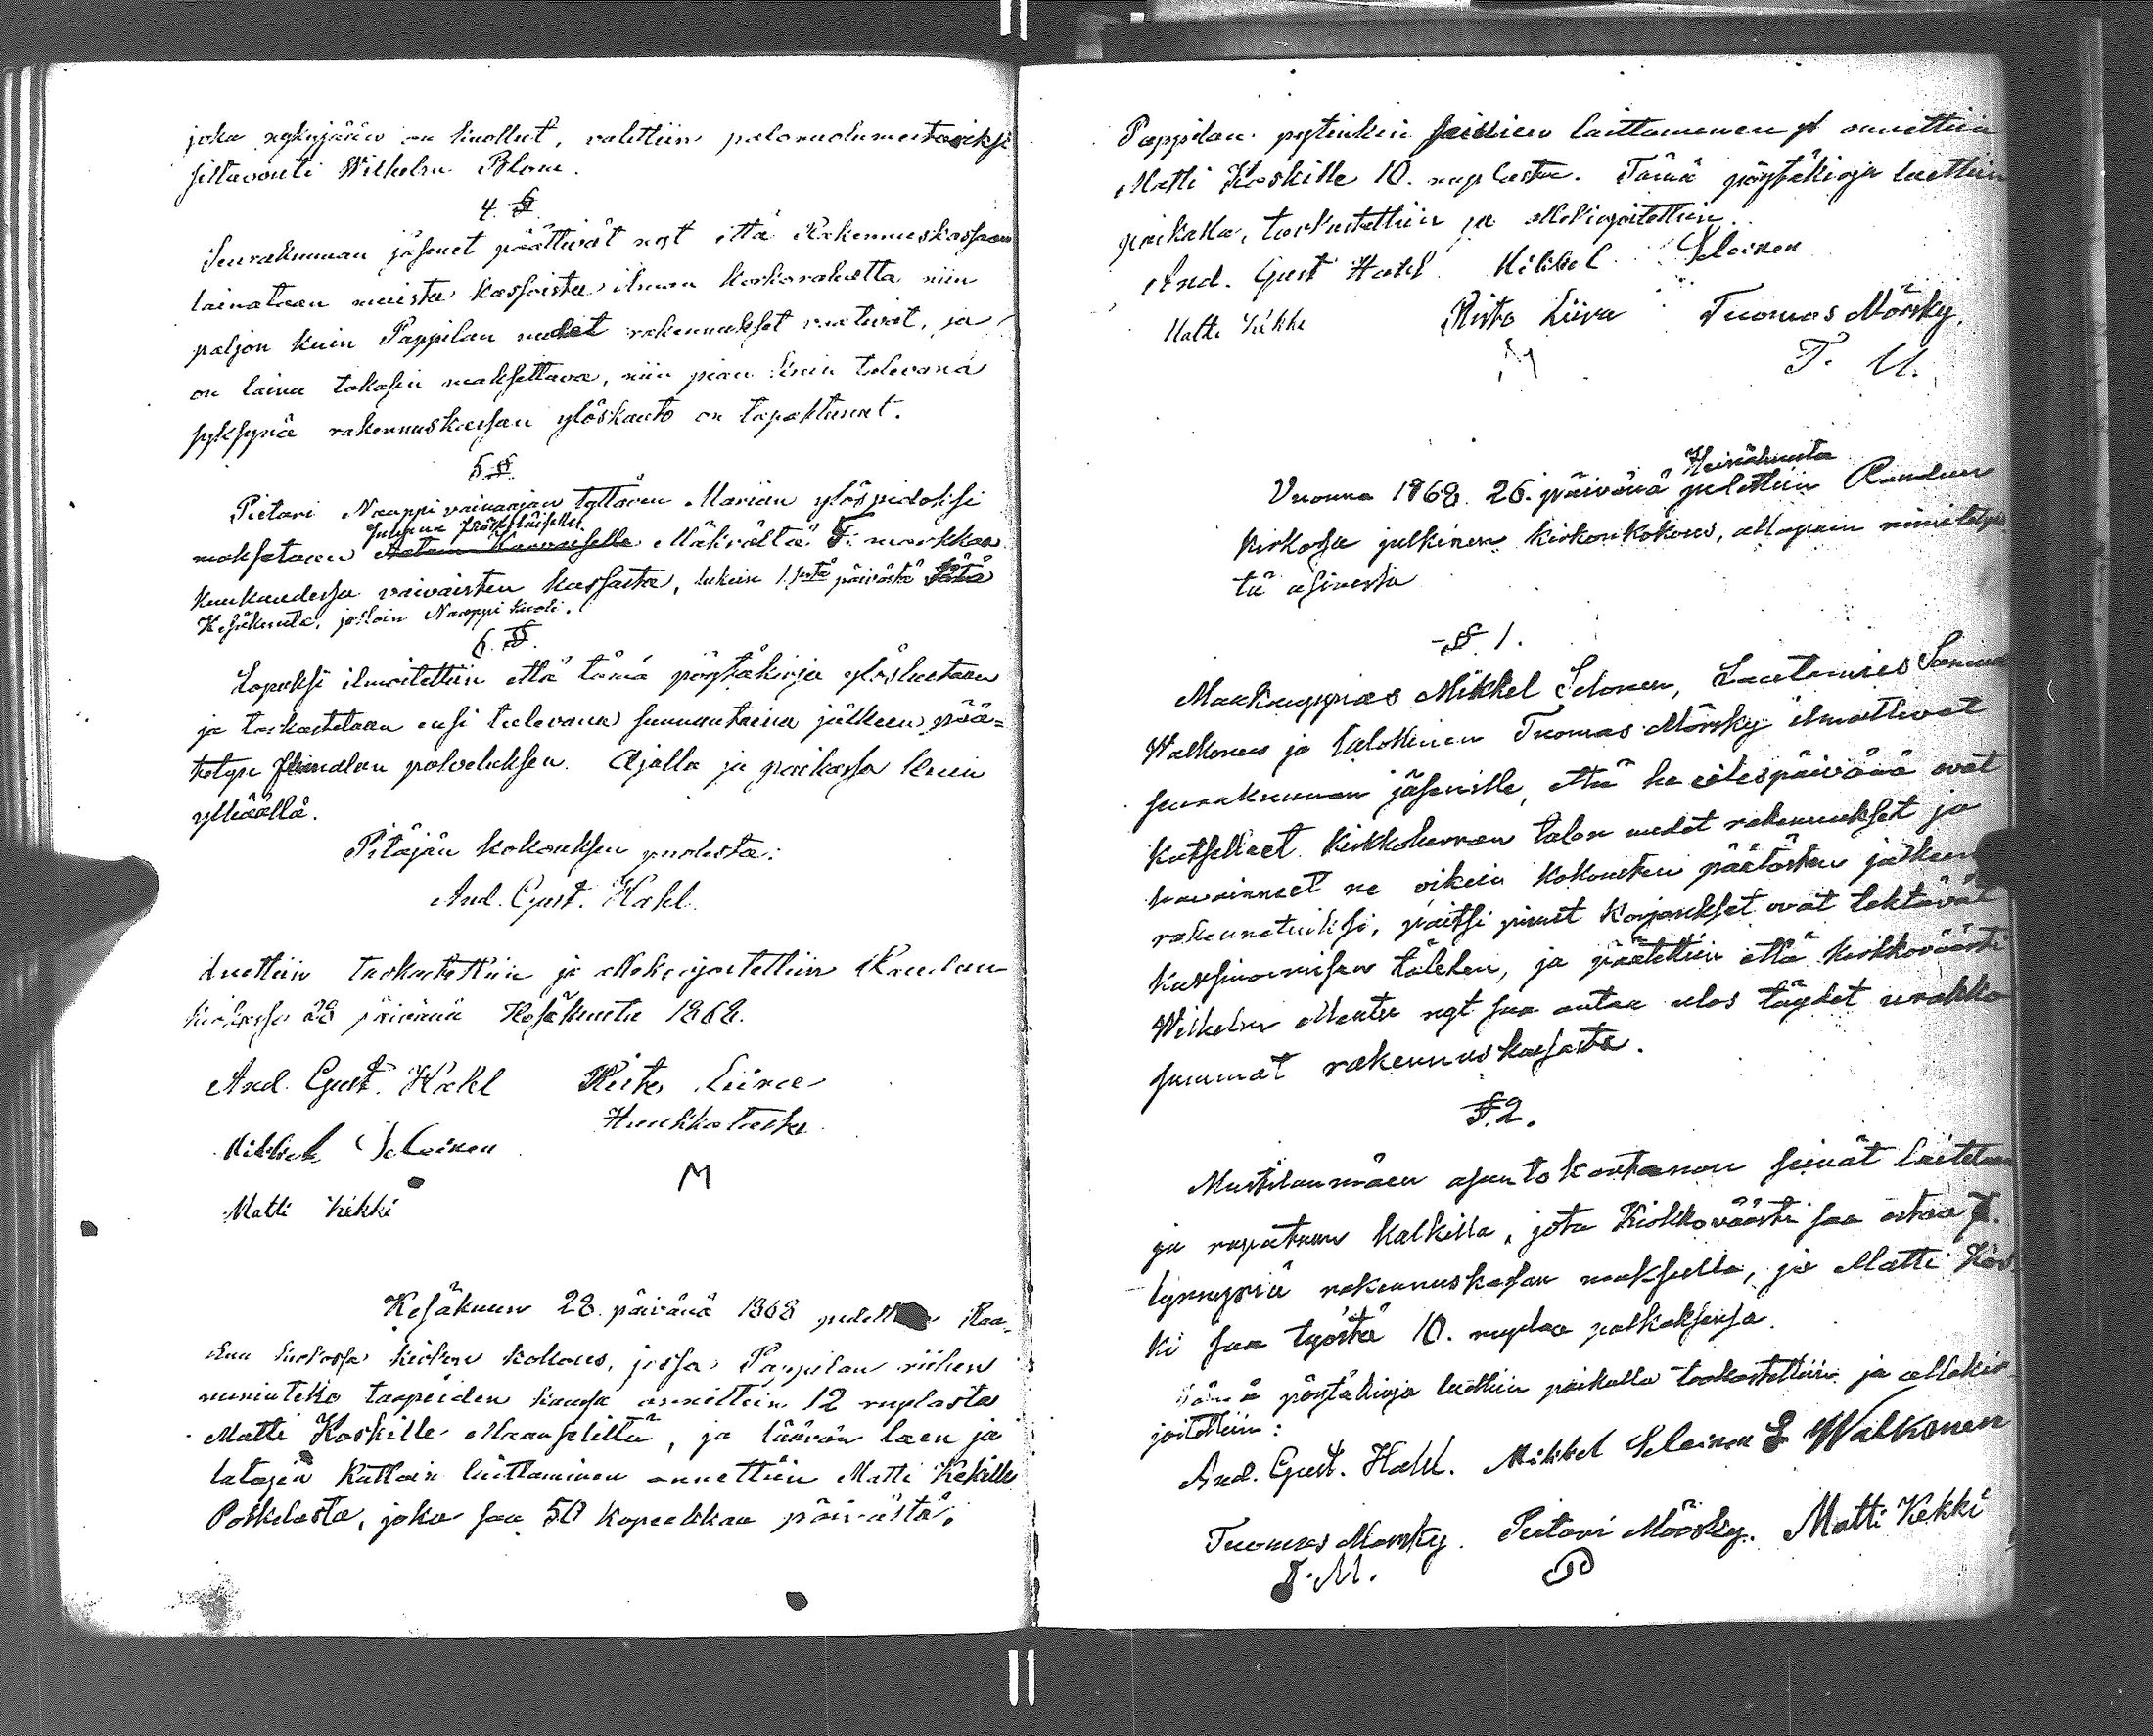 joka nykyjään on kuollut, valittiin palovuolumestariksi
siltavouti Wilhelm Blom.
4. §.
Seurakunnan jäsenet päättivät nyt että Rakennuskassaan
lainataan muista kassoista ilman korkorahatta niin
paljon kuin Pappilan uudet rakennukset vaativat, ja
on laina takasin maksettava, niin pian kuin tulevana
syksynä rakennuskassan ylöskanto on tapahtunut.
5. §.
Pietari Naappi vainaajan tyttären Marian ylöspidoksi
maksetaan Mäkrältä 5. markkaa
kuukaudessa vaivaisten kassasta, lukein 1.sestä päivästä
Kesäkuuta, jolloin Naappi kuoli.
6. §.
Lopuksi ilmoitettiin että tämä pöytäkirja ylösluetaan
ja tarkastetaan ensi tulevana sunnuntaina jälkeen pää=
tetyn Jumalan palveluksen. Ajalla ja paikassa kuin
ylhäällä.
Pitäjän kokouksen puolesta:
And. Gust. Hahl.
Luettiin tarkastettiin ja allekirjoitettiin Raudun
kirkossa 28 päivänä Kesäkuuta 1868.
And. Gust. Hahl Risto Liira
Mikkel Seloinen
M
Matti Kekki
Kesäkuun 28. päivänä 1868 Rau-
dun kirkossa kirkon kokous, jossa Pappilan riihen
uunin teko tarpeiden kanssa annettiin 12 ruplasta
Matti Koskille Maanseliltä, ja läävän laen ja
latojen kattoin laittaminen annettiin Matti Kekille
Poskelasta, joka saa 50 kopeekkaa päivästä.
Pappilan laittamenen annettiin
Matti Koskille 10. ruplasta. Tämä pöytäkirja luettiin
paikalla, tarkastettiin ja allekirjoitettiin.
And. Gust Hahl Mikkel Seloinen
Matti Kekki Risto Liira Tuomas Mörsky.
M T. M.
Heinäkuuta
Vuonna 1868. 26. päivänä pidettiin Raudun
Kirkossa julkinen kirkonkokous, allapain nimitety-
tä asioessa
§. 1.
Maakauppias Mikkel Selonen, Lautamies Samuel
Walkonen ja talollinen Tuomas Mörsky ilmoittivat
seurakunnan jäsenille, että he eilespäivänä ovat
katselleet Kirkkoherran talon uudet rakennukset ja
havainneet ne oikein kokousten päätösten jälkeen
rakennetuiksi, paitsi pienet korjaukset ovat tehtävät
tähden, ja päätettiin että kirkkoväärti
Wilhelm nyt saa antaa ulos täydet urakka
summat rakennuskassasta.
§. 2.
Mustilanmäen asuntokartanon seinät laitetaan
ja rapataan kalkilla, jota Kirkkoväärti saa ostaa 7.
tynnyriä rakennuskassan maksulla, ja Matti Kos-
ki saa työstä 10. ruplaa palkaksensa.
Tämä pöytäkirja luettiin paikalla tarkastettiin ja allekir-
joitettiin:
And. Gust. Hahl. Mikkel Seloinen S Walkonen
Tuomas Mörsky. Pietari Mörsky. Matti Kekki
T. M.